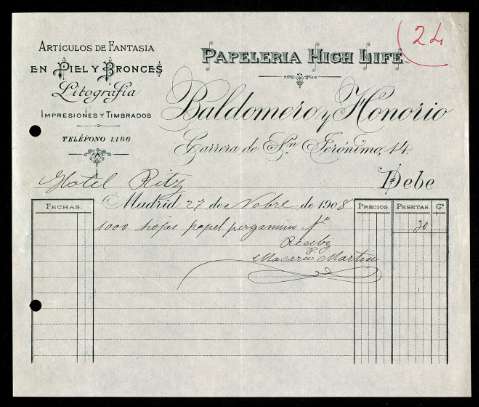 24
ARTÍCULOS DE FANTASIA
EN PIEL Y BRONCES
Litografía
IMPRESIONES Y TIMBRADOS
TELÉFONO 1180
PAPELERIA HIGH LIFE
Baldomero y Honorio
Carrera de Sn Jerónimo, 14
Hotel Ritz
Debe
Madrid 27 de Nobre de 1908
FECHAS
PRECIOS
PESETAS
Cs
1000 hojas papel pergamino
30
Recibí
Martín